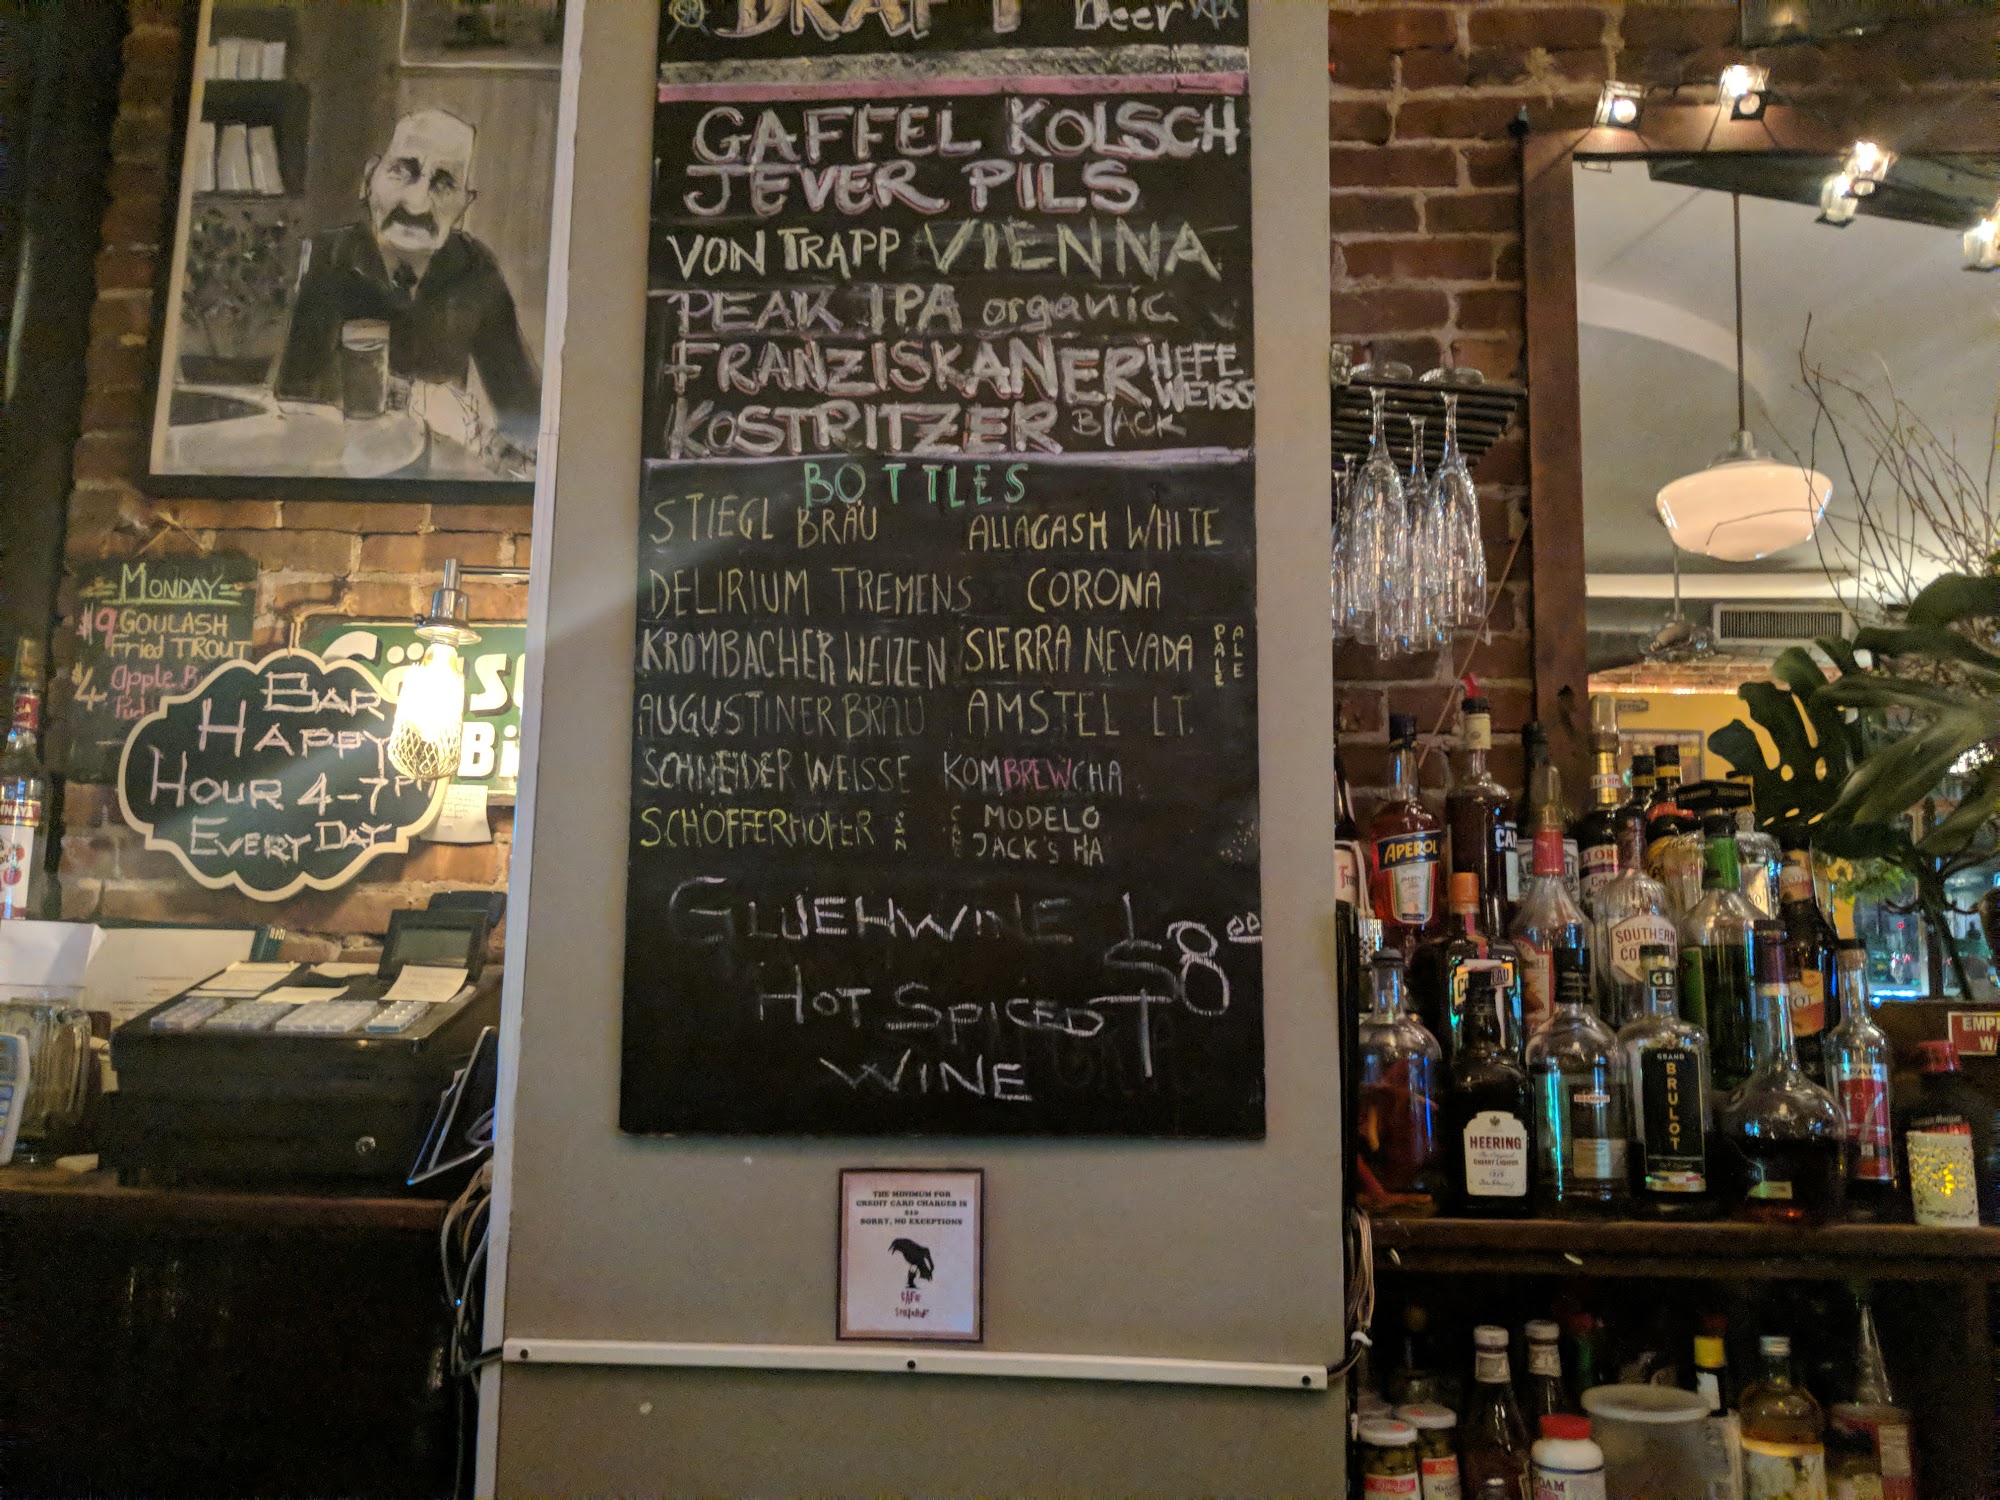 DRAFT Beer
GAFFEL KOLSCH
JEVER PILS
VON TRAPP VIENNA
PEAK IPA organic
FRANZISKANER HEFE WEISS
KOSTRITZER BLACK
BOTTLES
STIEGL BRÄU
ALLAGASH WHITE
DELIRIUM TREMENS
CORONA
KROMBACHER WEIZEN
SIERRA NEVADA PALE ALE
AUGUSTINER BRAU
AMSTEL LT.
SCHNEIDER WEISSE
KOMBREWCHA
SCHÖFFERHOFER CAN
CANS
MODELO
JACK'S HA
GLUEHWINE
$8.00
HOT SPICED
WINE
MONDAY
$9 GOULASH
Fried TROUT
$4 Apple
BAR
HAPPY
HOUR 4-7PM
EVERY DAY
THE MINIMUM FOR
CREDIT CARD CHARGES IS
$10
SORRY, NO EXCEPTIONS
CAFE
APEROL
SOUTHERN
HEERING
CHERRY LIQUEUR
GB
GRAND
BRULOT